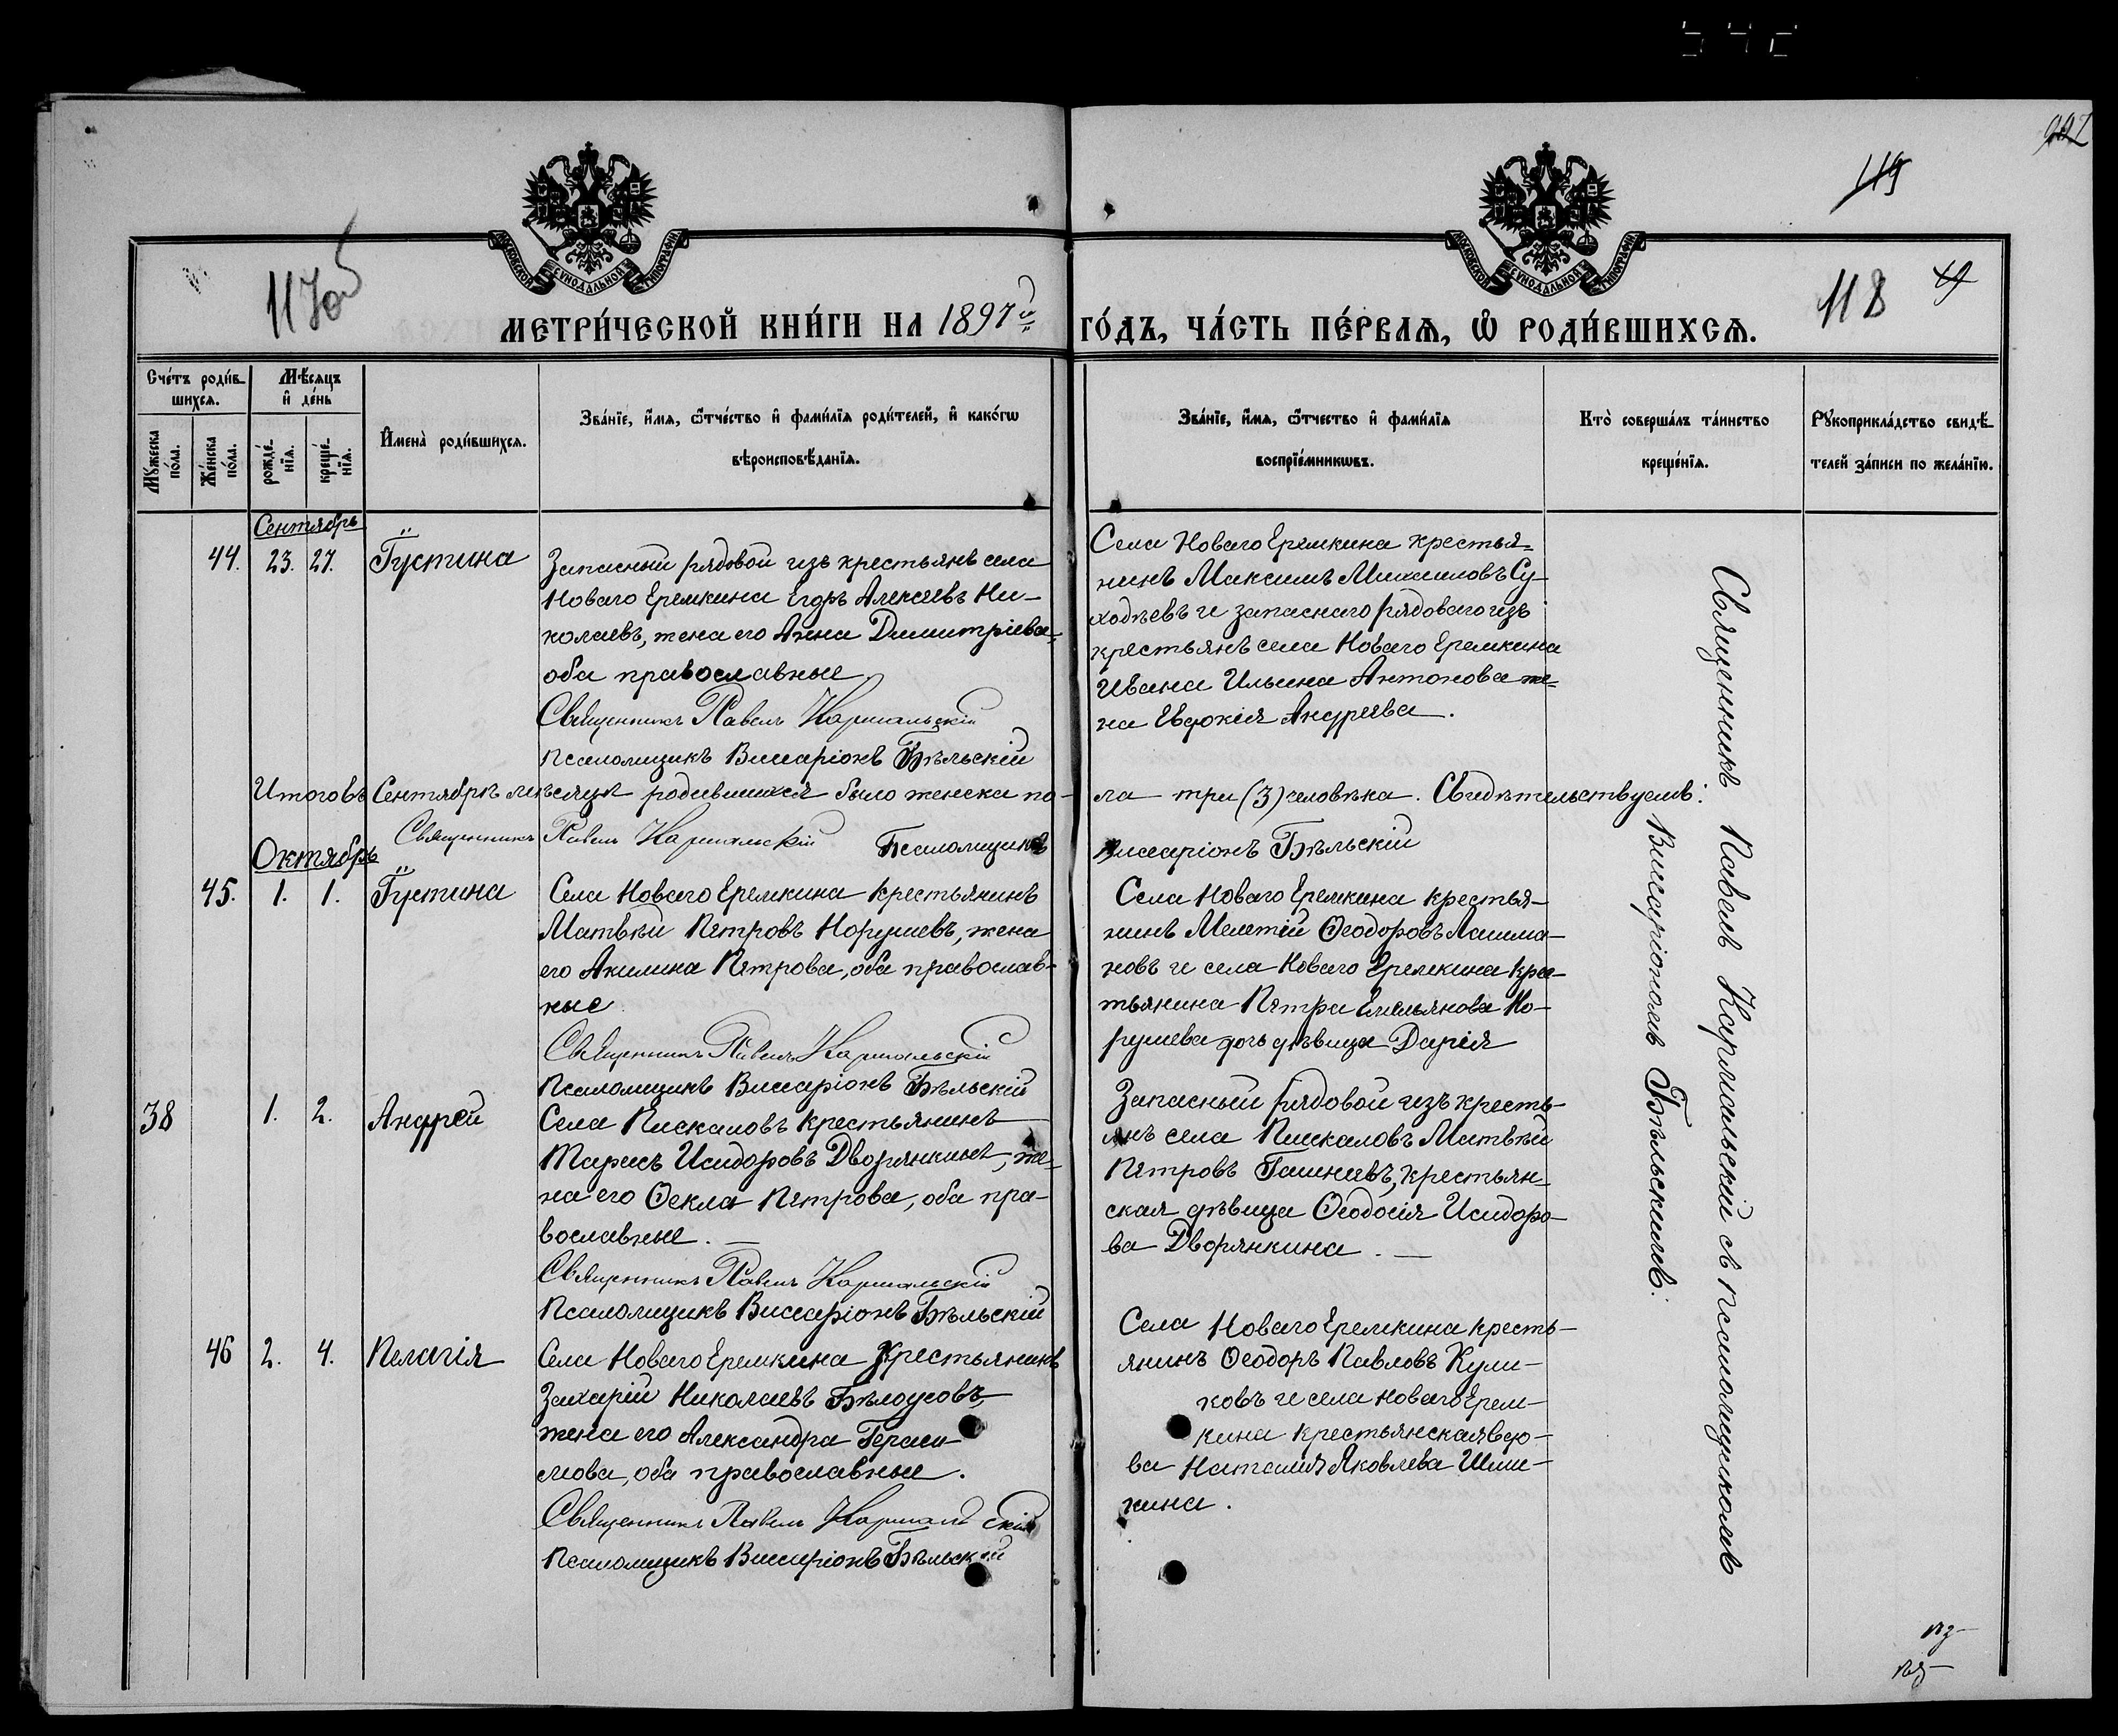 119
118
МЕТРИ́ЧЕСКОЙ КНИ́ГИ НА 1897й ГО́ДЪ, ЧА́СТЬ ПЕ́РВАѦ, Ѡ҆ РОДИ́ВШИХСѦ.
МОСКОВСКОЙ СѴНОДАЛЬНОЙ ТИПОГРАФІИ
МОСКОВСКОЙ СѴНОДАЛЬНОЙ ТИПОГРАФІИ
Сче́тъ роди́в-
шихсѧ.
Мѣ́сѧцъ
и҆ де́нь
Мꙋ́жеска
по́ла.
Же́нска
по́ла.
рожде́-
нїѧ.
креще́-
нїѧ.
И҆мена̀ роди́вшихсѧ.
Зва́нїе, и҆́мѧ, ѻ҆́тчество и҆ фами́лїѧ роди́телей, и҆ како́гѡ
вѣроисповѣ́данїѧ.
Зва́нїе, и҆́мѧ, ѻ҆́тчество и҆ фами́лїѧ
воспрїе́мникѡвъ.
Кто̀ соверша́лъ та́инство
креще́нїѧ.
Рꙋкоприкла́дство свидѣ́-
телей за́писи по жела́нїю.
Сентябрь
44. 23. 27. Іустина
Запасный рядовой изъ крестьянъ села
Новаго Еремкина Егоръ Алексѣевъ Ни-
колаевъ, жена его Анна Димитріева,
оба православные.
Священникъ Павелъ Кармальскій
Псаломщикъ Виссаріонъ Бѣльскій
Села Новаго Еремкина крестья-
нинъ Максимъ Михаиловъ Су-
ходѣевъ и запаснаго рядоваго изъ
крестьянъ села Новаго Еремкина
Ивана Ильина Антонова же-
на Евдокія Андреева.
Итого въ Сентябрѣ мѣсяцѣ родившихся было женска по- ла три (3) человѣка. Свидѣтельствуемъ:
Священникъ Павелъ Кармальскій Псаломщикъ Виссаріонъ Бѣльскій
Октябрь
45. 1. 1. Іустина
Села Новаго Еремкина крестьянинъ
Матвѣй Петровъ Норушевъ, жена
его Акилина Петрова, оба православ-
ные
Священникъ Павелъ Кармальскій
Псаломщикъ Виссаріонъ Бѣльскій
Села Новаго Еремкина крестья-
нинъ Мелетій Ѳеодоровъ Лашма-
новъ и села Новаго Еремкина крес-
тьянина Петра Емельянова Но-
рушева дочь дѣвица Дарія
38 1. 2. Андрей
Села Пискаловъ крестьянинъ
Тарасъ Исидоровъ Дворянкинъ, же-
на его Ѳекла Петрова, оба пра-
вославные.
Священникъ Павелъ Кармальскій
Псаломщикъ Виссаріонъ Бѣльскій
Запасный рядовой изъ кресть-
янъ села Пискаловъ Матвѣй
Петровъ Гашневъ, крестьян-
ская дѣвица Ѳеодосія Исидоро-
ва Дворянкина.
46 2. 4. Пелагія
Села Новаго Еремкина Крестьянинъ
Захарій Николаевъ Бѣлоусовъ,
жена его Александра Гераси-
мова, оба православные.
Священникъ Павелъ Кармальскій
Псаломщикъ Виссаріонъ Бѣльскій
Села Новаго Еремкина кресть-
янинъ Ѳеодоръ Павловъ Кули-
ковъ и села Новаго Ерем-
кина крестьянская вдо-
ва Наталія Яковлева Шиш-
кина.
Священникъ Павелъ Кармальскій съ псаломщикомъ
Виссаріономъ Бѣльскимъ.